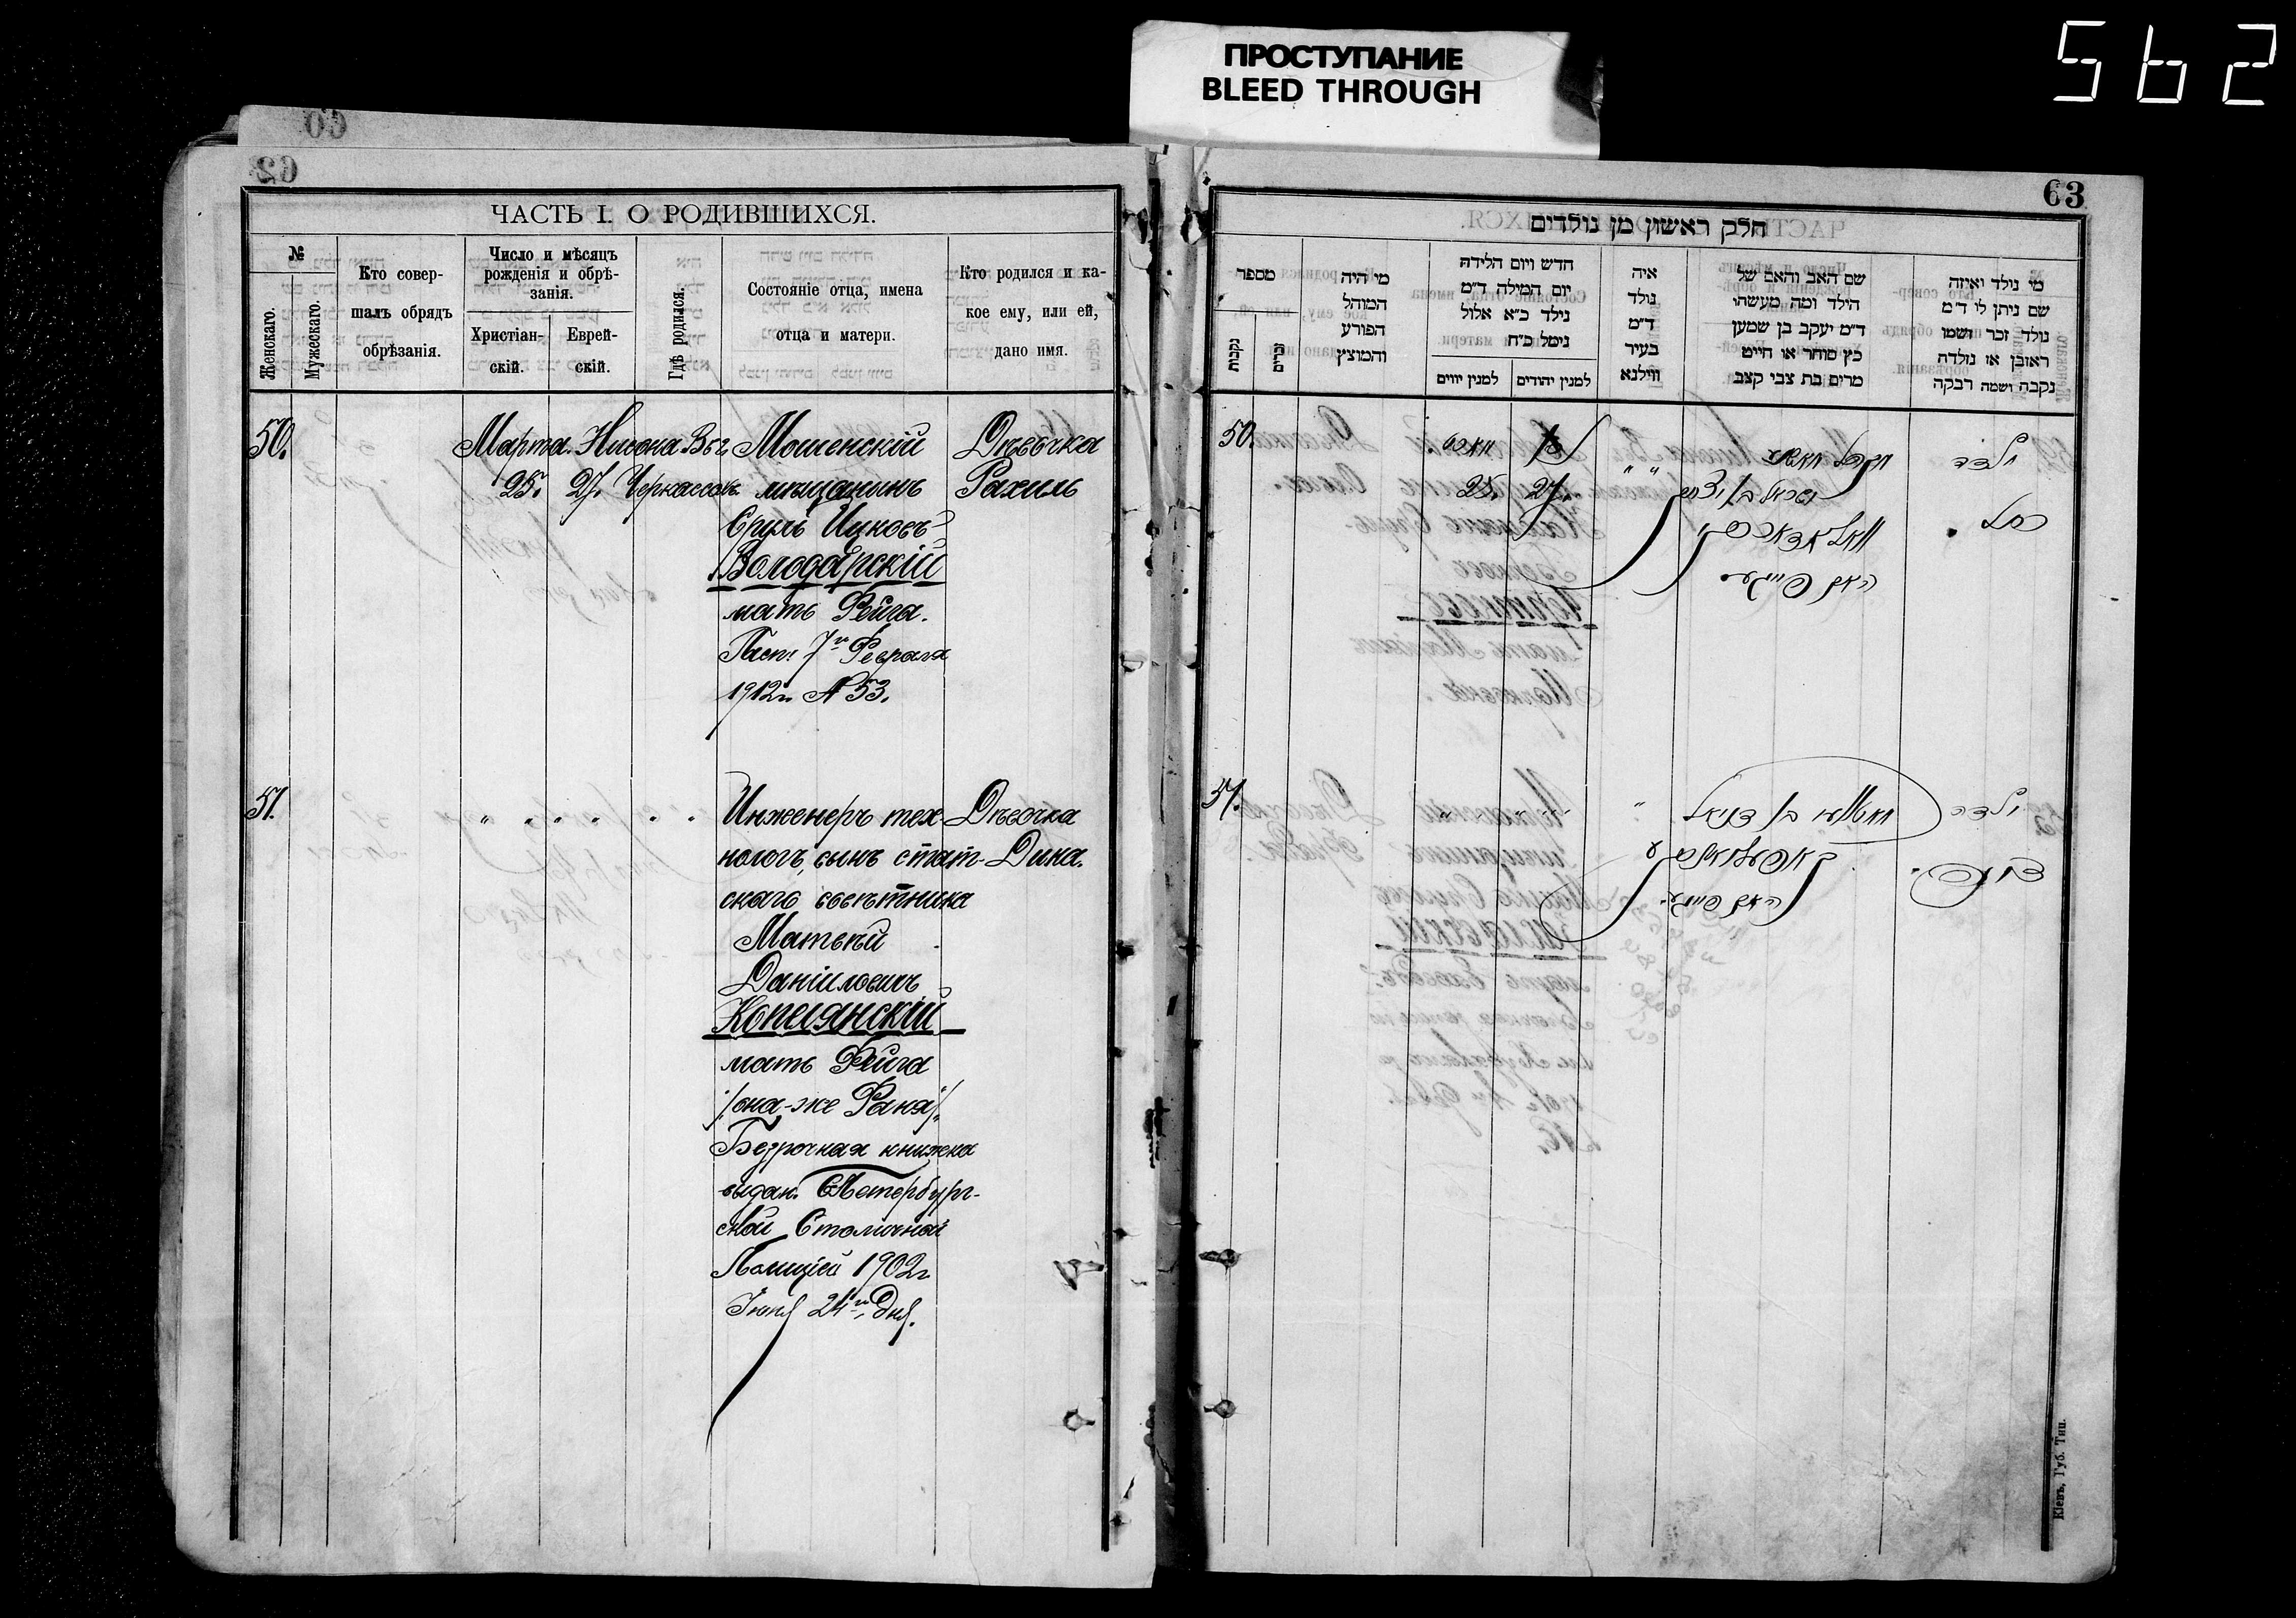 562
ПРОСТУПАНИЕ
BLEED THROUGH
60
62
ЧАСТЬ I. О РОДИВШИХСЯ.
№
Женскаго.
Мужескаго.
Кто совер-
шалъ обрядъ
обрѣзанія.
Число и мѣсяцъ
рожденія и обрѣ-
занія.
Христіан-
скій.
Еврей-
скій.
Гдѣ родился.
Состояніе отца, имена
отца и матери.
Кто родился и ка-
кое ему, или ей,
дано имя.
50. Марта. Нисона Въ г. Мошенскій Дѣвочка
25. 27. Черкассахъ мѣщанинъ Рахиль
Сруль Ицковъ
Володарскій
мать Фейга.
Пасп. 7го Февраля
1912г. № 53.
51. " " " " " " Инженеръ тех- Дѣвочка
нологъ, сынъ стат- Дина.
скаго совѣтника
Матвѣй
Даніиловичъ
Копелянскій
мать Фейга
/она-же Фаня/.
Безсрочная книжка
выдан. СПетербург-
ской Столичной
Полиціей 1902г
Іюня 24го дня.
63
חלק ראשון מן נולדים
מספר
נקבות
זכרים
מי היה
המוהל
הפורע
והמוצץ
חדש ויום הלידה
יום המילה ד"מ
נילד כ"א אלול
נימל כ"ח
למנין יווים
למנין יהודים
איה
נולד
ד"מ
בעיר
ווילנא
שם האב והאם של
הילד ומה מעשהו
ד"מ יעקב בן שמעון
כץ סוחר או חייט
מרים בת צבי קצב
מי נילד ואיזה
שם ניתן לו ד"מ
נולד זכר ושמו
ראובן או נולדה
נקבה ושמה רבקה
50.
25. 27.
האם פייגע
51.
ילדה
האם פייגע
Кіевъ, Губ. Тип.